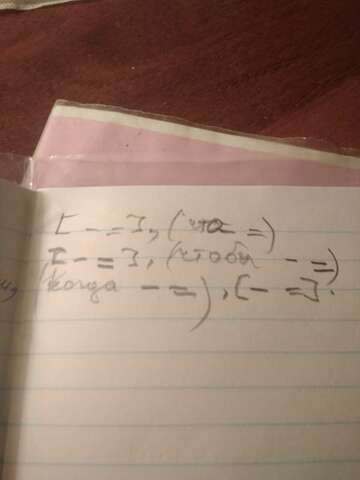 [ - = ], (что =)
[ - = ], (чтобы - =)
(Когда - =), [ - = ].